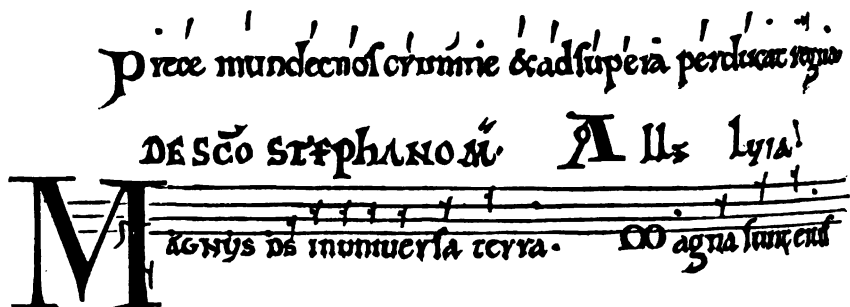 prece mundet nos crimine & ad supera perducat regna
DE SCO STEPHANO M. All lyia
MAGNUS DS in universa terra. Magna sunt eni